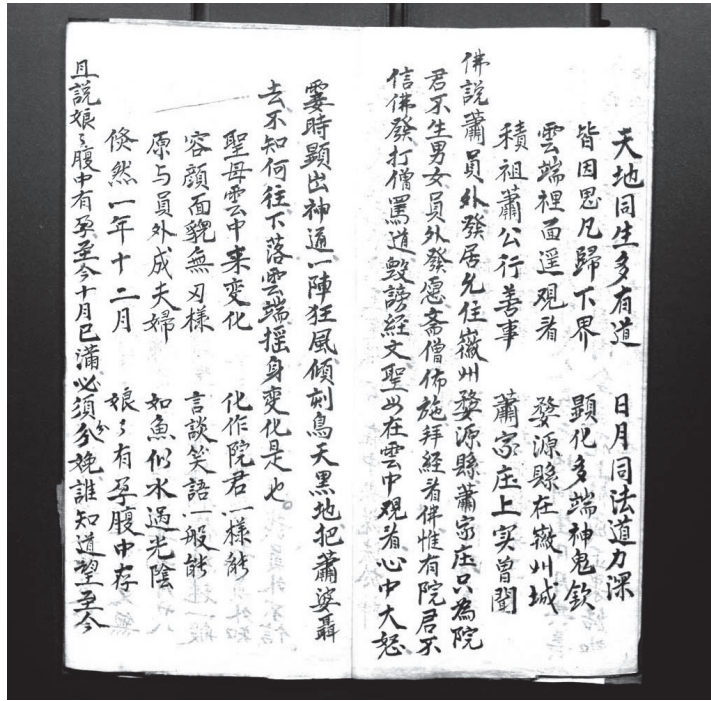 天地同生多有道　日月同法道力深
皆因思凡歸下界　顯化多端神鬼欽
雲端裡面遥觀看　婺源縣在徽州城
積祖蕭公行善事　蕭家庄上实曾聞
佛説蕭員外發居允住徽州婺源縣蕭家庄只為院
君不生男女員外發愿斎僧佈施拜經看佛惟有院君不
信佛發打僧罵道毀謗經文聖母在雲中观看心中大怒
霎時顕出神通一陣狂風傾刻烏天黑地把蕭婆聶
去不知何往下落雲端揺身変化是也
聖母雲中来変化　化作院君一樣能
容顔面貌無刄樣　言談笑語一般能
原与員外成夫婦　如魚似水過光陰
倐然一年十二月　娘々有孕腹中存
且説娘々腹中有孕至今十月已滿必須分娩誰知道望至今